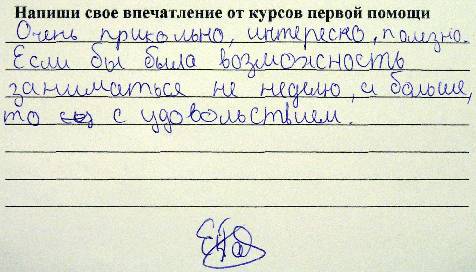 Напиши свое впечатление от курсов первой помощи
Очень прикольно, интересно, полезно.
Если бы была возможность
заниматься не неделю, а больше,
то с удовольствием.